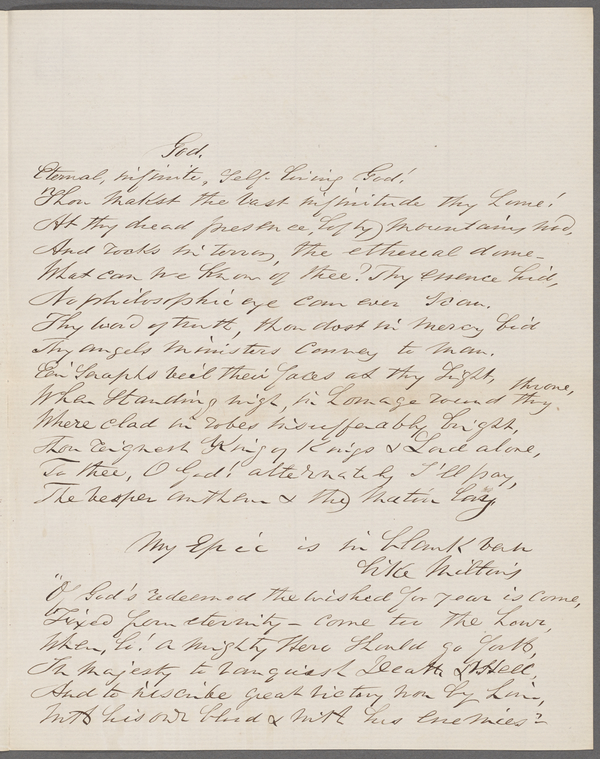 God.
Eternal, infinite, Self living God!
Thou makst the vast infinitude thy home!
At thy dread presence, lofty mountains nod,
And rocks in terror, the ethereal dome—
What can we know of thee? Thy essence hid,
No philosophic eye can ever scan.
Thy word of truth, thou dost in mercy bid
Thy angels ministers convey to man.
E'en Seraphs veil their faces at thy Sight,
When standing nigh, in homage round thy throne,
Where clad in robes insufferably bright,
Thou reignest King of Kings & Lord alone,
To thee, O God! alternately I'll pay,
The vesper anthem & the matin lay.
My Epic is in blank verse
like Milton's
"Of God's redeemed the wished for year is come,
Fixed from eternity — come too the hour,
When, lo! a mighty Hero should go forth,
In majesty to vanquish Death & Hell,
And to inscribe great victory won by him,
With his own blood & with his enemies"